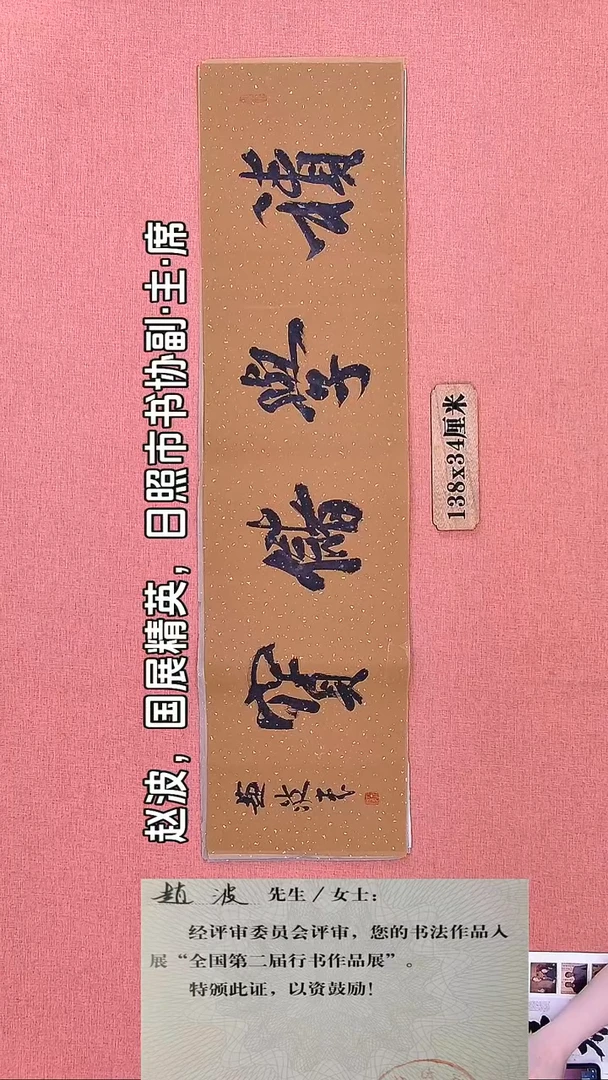 赵波，国展精英，日照市书协副·主·席
積學儲寶
趙波书
138x34厘米
趙波 先生/女士：
经评审委员会评审，您的书法作品入
展“全国第二届行书作品展”。
特颁此证，以资鼓励！